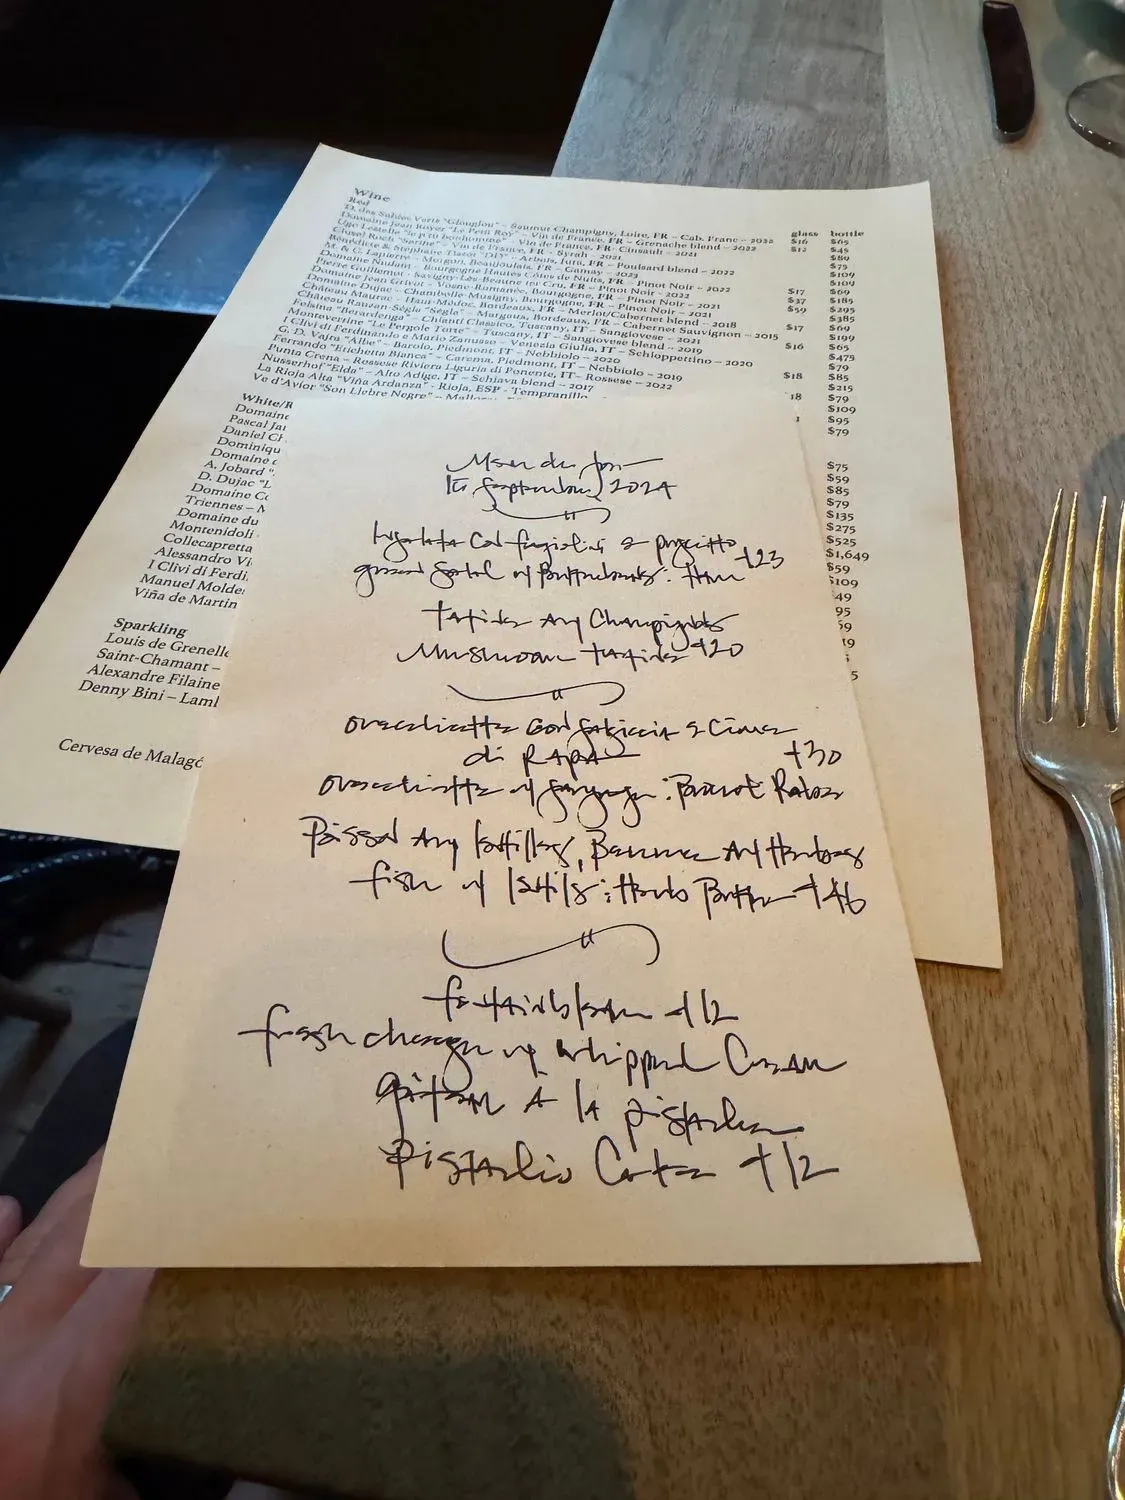 Wine
Red
glass bottle
D. des Sables Verts "Glouglou" – Saumur Champigny, Loire, FR – Cab. Franc – 2022 $16 $65
Domaine Jean Royer "Le Petit Roy" – Vin de France, FR – Grenache blend – 2022 $12 $45
"le p'tit bonhomme" – Vin de France, FR – Cinsault – 2021 $89
– Vin de France, FR – Syrah – 2021 $75
Bénédicte & Stéphane Tissot "DD" – Arbois, Jura, FR – Poulsard blend – 2022 $109
M. & C. Lapierre – Morgon, Beaujolais, FR – Gamay – 2023 $109
Domaine Nudant – Bourgogne Hautes Côtes de Nuits, FR – Pinot Noir – 2022 $17 $69
Pierre Guillemot – Savigny Les Beaune 1er Cru, FR – Pinot Noir – 2022 $37 $185
Domaine Jean Grivot – Vosne-Romanée, Bourgogne, FR – Pinot Noir – 2021 $59 $295
Domaine Dujac – Chambolle-Musigny, Bourgogne, FR – Pinot Noir – 2021 $385
Château Maurac – Haut-Médoc, Bordeaux, FR – Merlot/Cabernet blend – 2018 $17 $69
Château Rauzan Ségla "Ségla" – Margaux, Bordeaux, FR – Cabernet Sauvignon – 2015 $199
Felsina "Berardenga" – Chianti Classico, Tuscany, IT – Sangiovese – 2021 $16 $65
Montevertine "Le Pergole Torte" – Tuscany, IT – Sangiovese blend – 2019 $475
I Clivi di Ferdinando e Mario Zanusso – Venezia Giulia, IT – Schioppettino – 2020 $79
G. D. Vajra "Albe" – Barolo, Piedmont, IT – Nebbiolo – 2020 $18 $85
Ferrando "Etichetta Bianca" – Carema, Piedmont, IT – Nebbiolo – 2019 $215
Punta Crena – Rossese Riviera Liguria di Ponente, IT – Rossese – 2022 18 $79
Nusserhof "Elda" – Alto Adige, IT – Schiava blend – 2017 $109
La Rioja Alta "Viña Ardanza" – Rioja, ESP – Tempranillo 1 $95
Ve d'Avior "Son Llebre Negre" – $79
White/R
Domaine $75
Pascal Jan $59
Daniel Ch $85
Dominiqu $79
Domaine $135
A. Jobard $275
D. Dujac "L $525
Domaine Co $1,649
Triennes – M $59
Domaine du $109
Montenidoli 49
Collecapretta 95
Alessandro Vi 59
I Clivi di Ferdi 19
Manuel Molde
Viña de Martin 5
Sparkling
Louis de Grenelle
Saint-Chamant –
Alexandre Filaine
Denny Bini – Laml
Cervesa de Malagó
Menu du Jour
15 September 2024
Insalata con fagiolini e prosciutto
green salad w/ Butterbeans: Ham +23
Tartine aux Champignons
Mushroom tartine +20
orecchiette con salsiccia e cime
di RAPA +30
orecchiette w/ sausage: Broccoli Rabe
Poisson aux lentilles, Beurre aux Herbes
fish w/ lentils: Herb Butter +46
fontainbleau +12
fresh cheese w/ whipped Cream
gateau à la pistache
Pistachio Cake +12